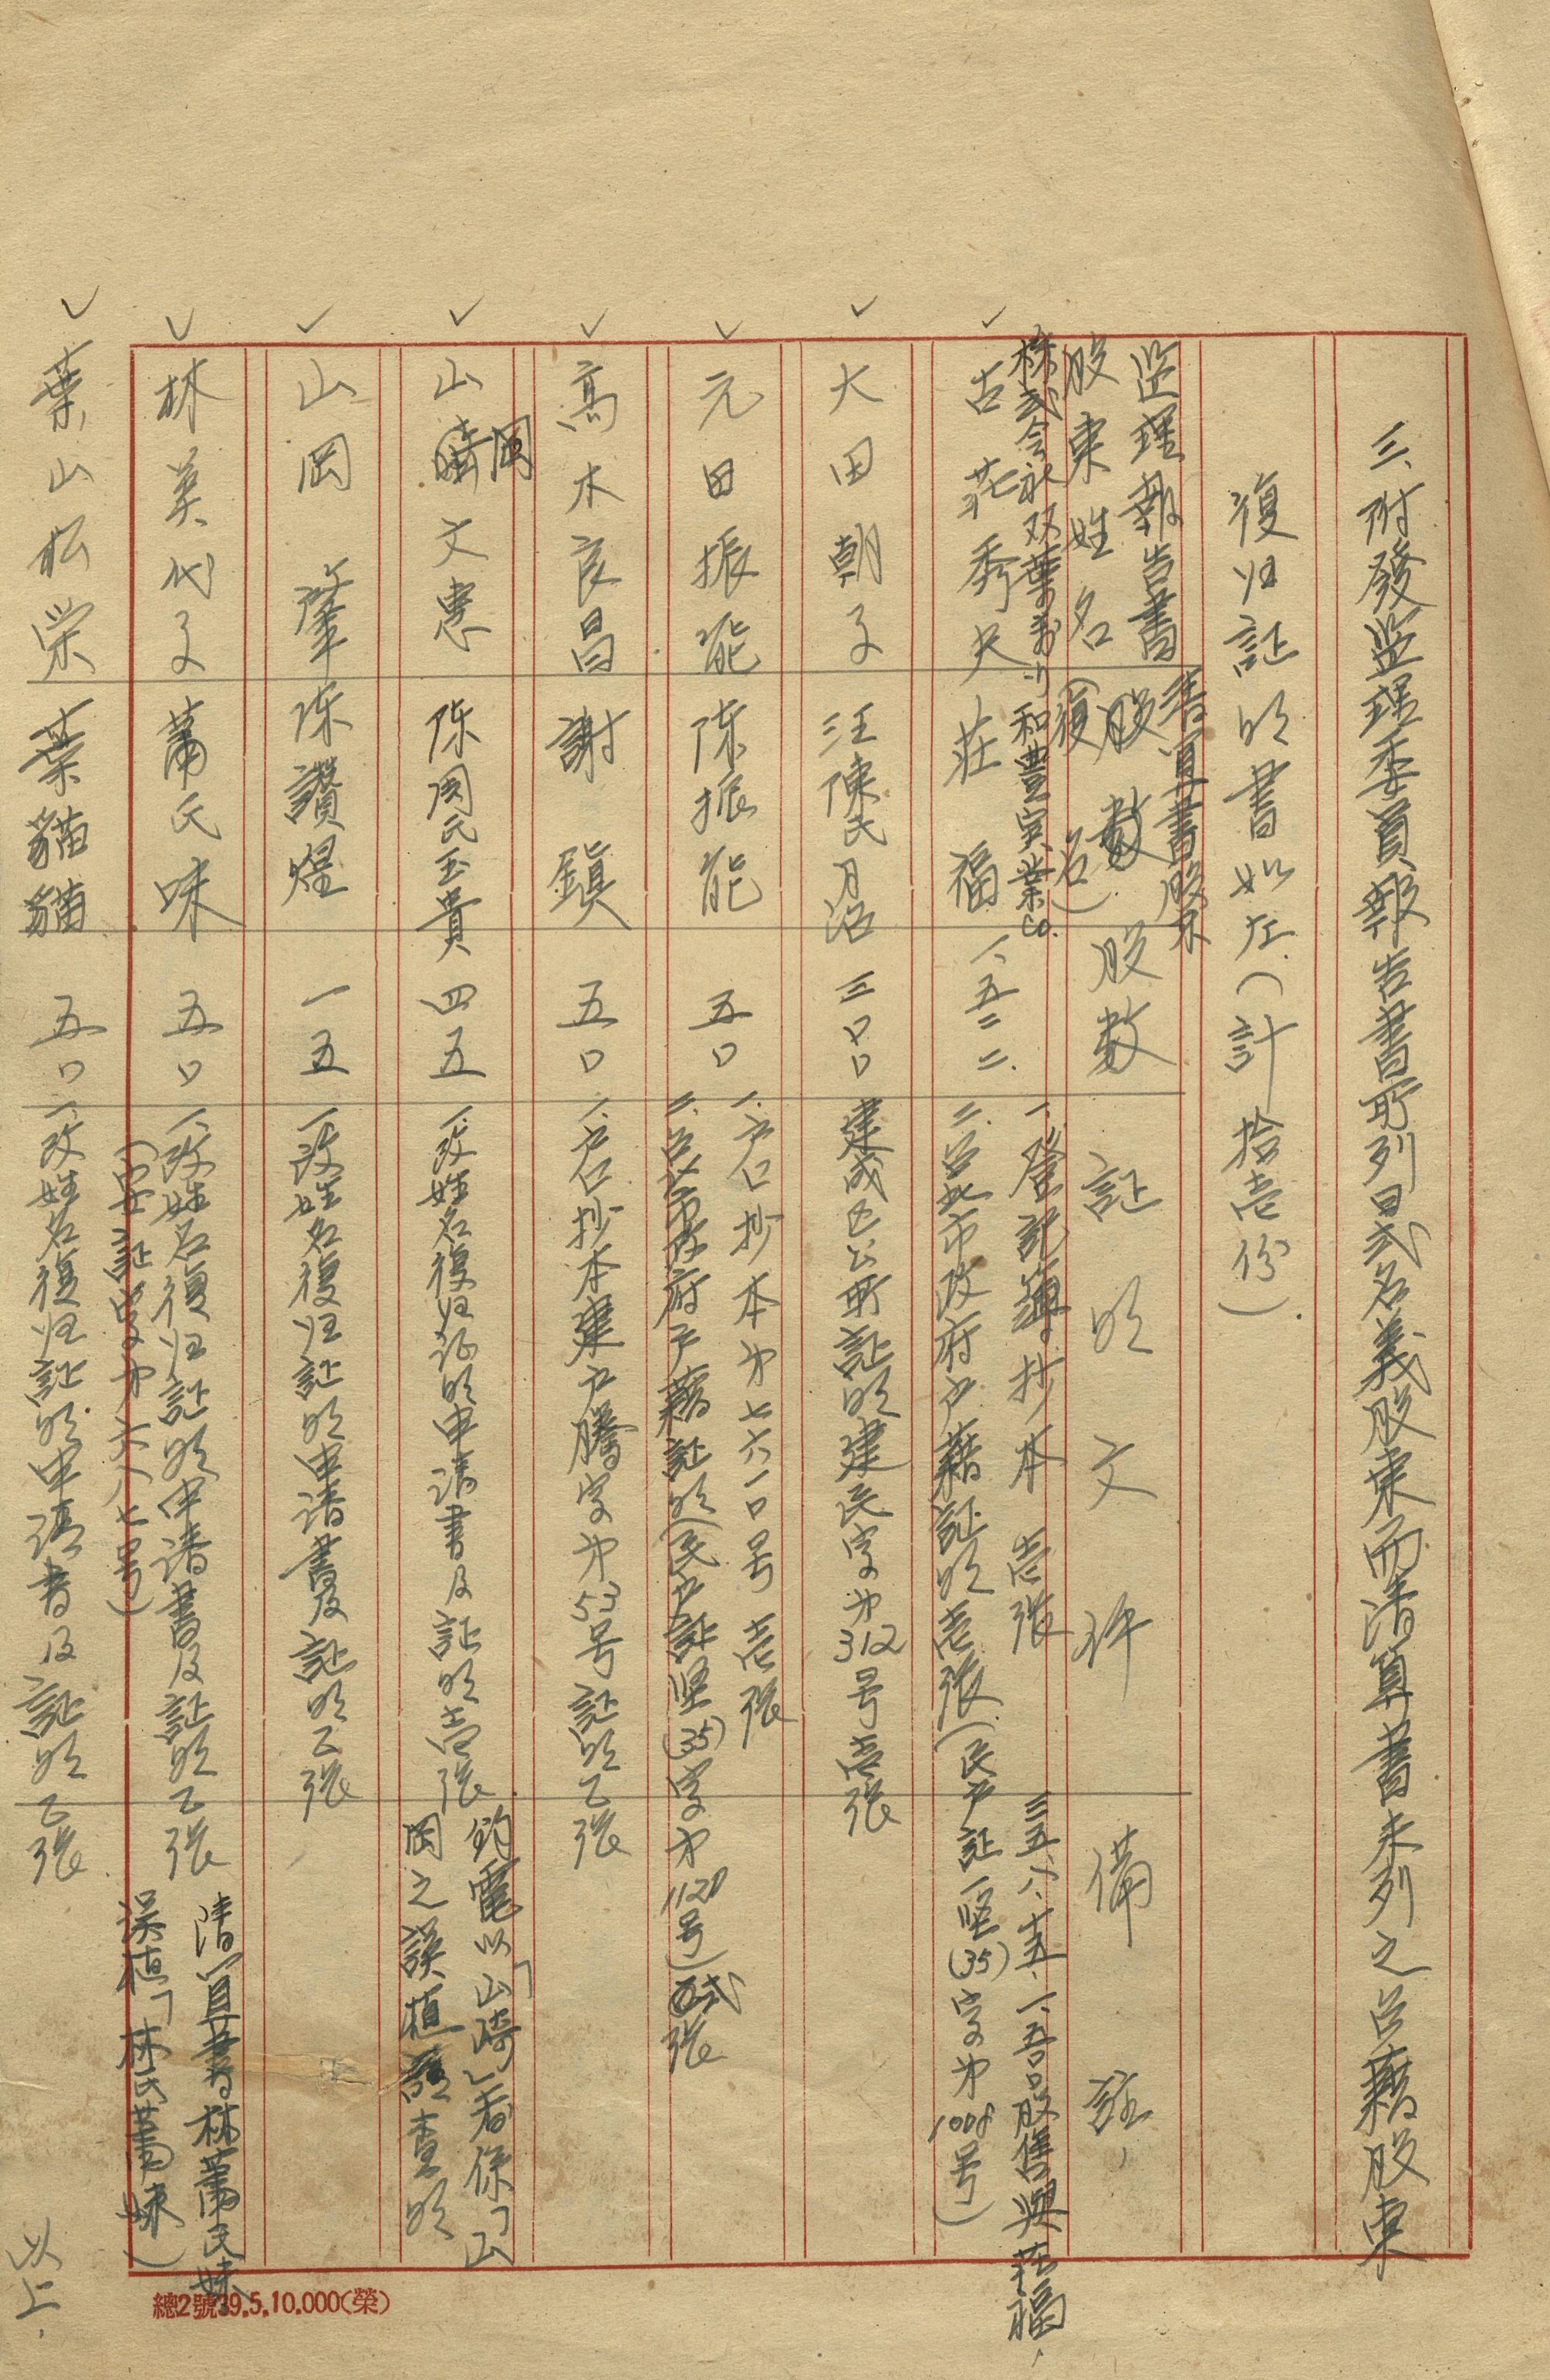 三、附發监理委員報告書所列日式名義股東而清算書未列之台籍股東
復归証明書如左（計拾壱份）.
监理報告書
股東姓名
清算書股東
股數
（復名）
股数
証明文件
備註
株式会社双葉商行
和豊実業co.
一.登記簿抄本壱張
三五、八、十五、一、五〇口股售與莊福、
✓
古莊秀夫
莊福
一、五二二
二.台北市政府戶藉証明壱張（民戶証堅(35)字第1008号）
✓
大田朝子
汪陳氏月沼
三〇〇
建成区公所証明建民字第312号壱張
✓
元田振能
陈振能
五〇
一.戶口抄本第七六一〇号壱張
二.台北市政府戶藉証明（民戶証堅(35)字第1120号）弍張
✓
高木良昌
謝鎮
五〇
一.戶口抄本建戶謄字第53号証明乙張
✓
山崎文惠
岡
陈周氏玉貴
四五
一.改姓名復归証明申请書及証明壱張
鈞電以「山崎」看係「山
岡之誤植證查明
✓
山岡肇
陈讚煌
一五
一.改姓名復归証明申请書及証明乙張
✓
林美代子
蕭氏味
五〇
一.改姓名復归証明申请書及証明乙張
（字第六八七号）
清算書林蕭氏妹
误植「林氏蕭妹）
✓
葉山松栄
葉貓貓
五〇
一.改姓名復归証明申请書及証明乙張
以上.
總2號39.5.10.000(榮)